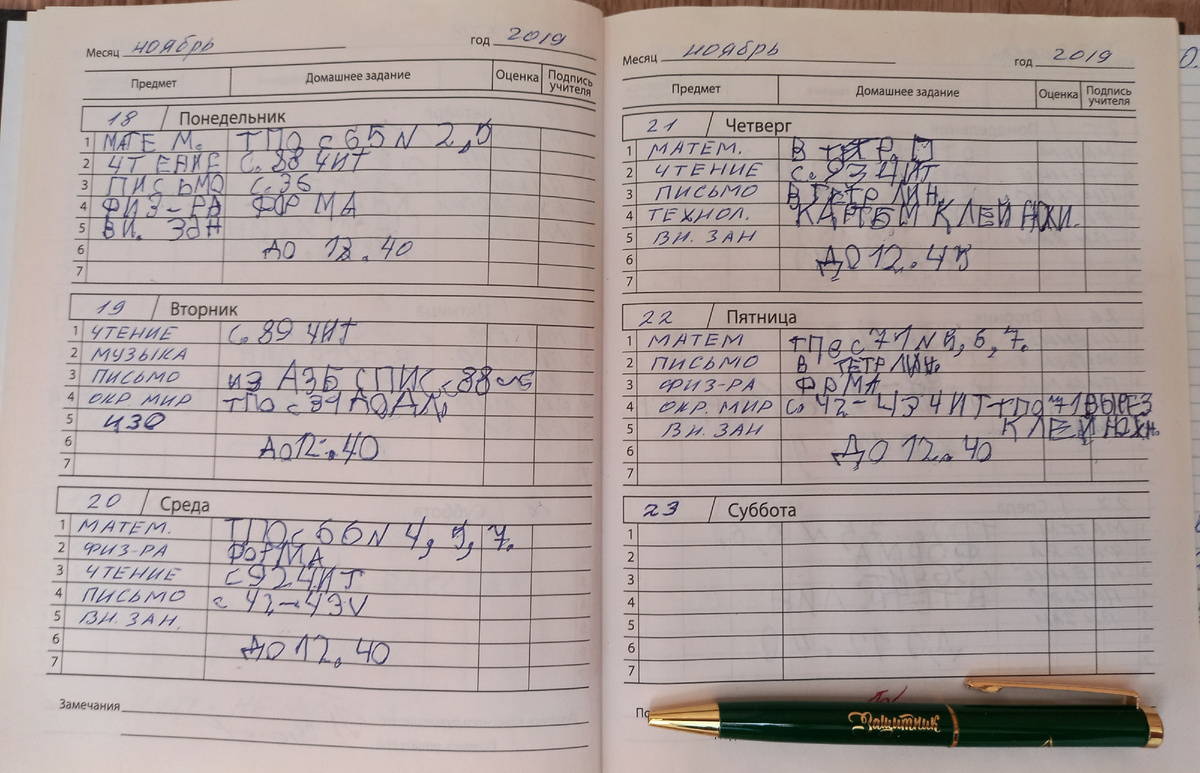 Месяц ноябрь год 2019
Предмет Домашнее задание Оценка Подпись учителя
18 Понедельник
1 МАТЕ М. ТПО с 65 N 2,5
2 ЧТЕНИЕ С. 88 ЧИТ
3 ПИСЬМО с. 36
4 ФИЗ-РА ФОРМА
5 ВН. ЗАН
6 ДО 12.40
7
19 Вторник
1 ЧТЕНИЕ С. 89 ЧИТ
2 МУЗЫКА
3 ПИСЬМО ИЗ АЗБ СПИС с 88
4 ОКР. МИР ТПО с
5 ИЗО
6 ДО 12.40
7
20 Среда
1 МАТЕМ. ТПО с 66 N 4, 5, 7.
2 ФИЗ-РА ФОРМА
3 ЧТЕНИЕ с 92 ЧИТ
4 ПИСЬМО с 42-43
5 ВН. ЗАН.
6 ДО 12.40
7
Замечания
Месяц ноябрь год 2019
Предмет Домашнее задание Оценка Подпись учителя
21 Четверг
1 МАТЕМ. В ТЕТР.
2 ЧТЕНИЕ с. 93 ЧИТ
3 ПИСЬМО В ТЕТР ЛИН.
4 ТЕХНОЛ. КЛЕЙ НОЖ.
5 ВН. ЗАН
6 ДО 12.45
7
22 Пятница
1 МАТЕМ ТПО с 71 N 5, 6, 7.
2 ПИСЬМО В ТЕТР ЛИН.
3 ФИЗ-РА ФОРМА
4 ОКР. МИР с. 42-43 ЧИТ ТПО 71 ВЫРЕЗ
5 ВН. ЗАН КЛЕЙ НОЖ.
6 ДО 12.40
7
23 Суббота
1
2
3
4
5
6
7
Защитник